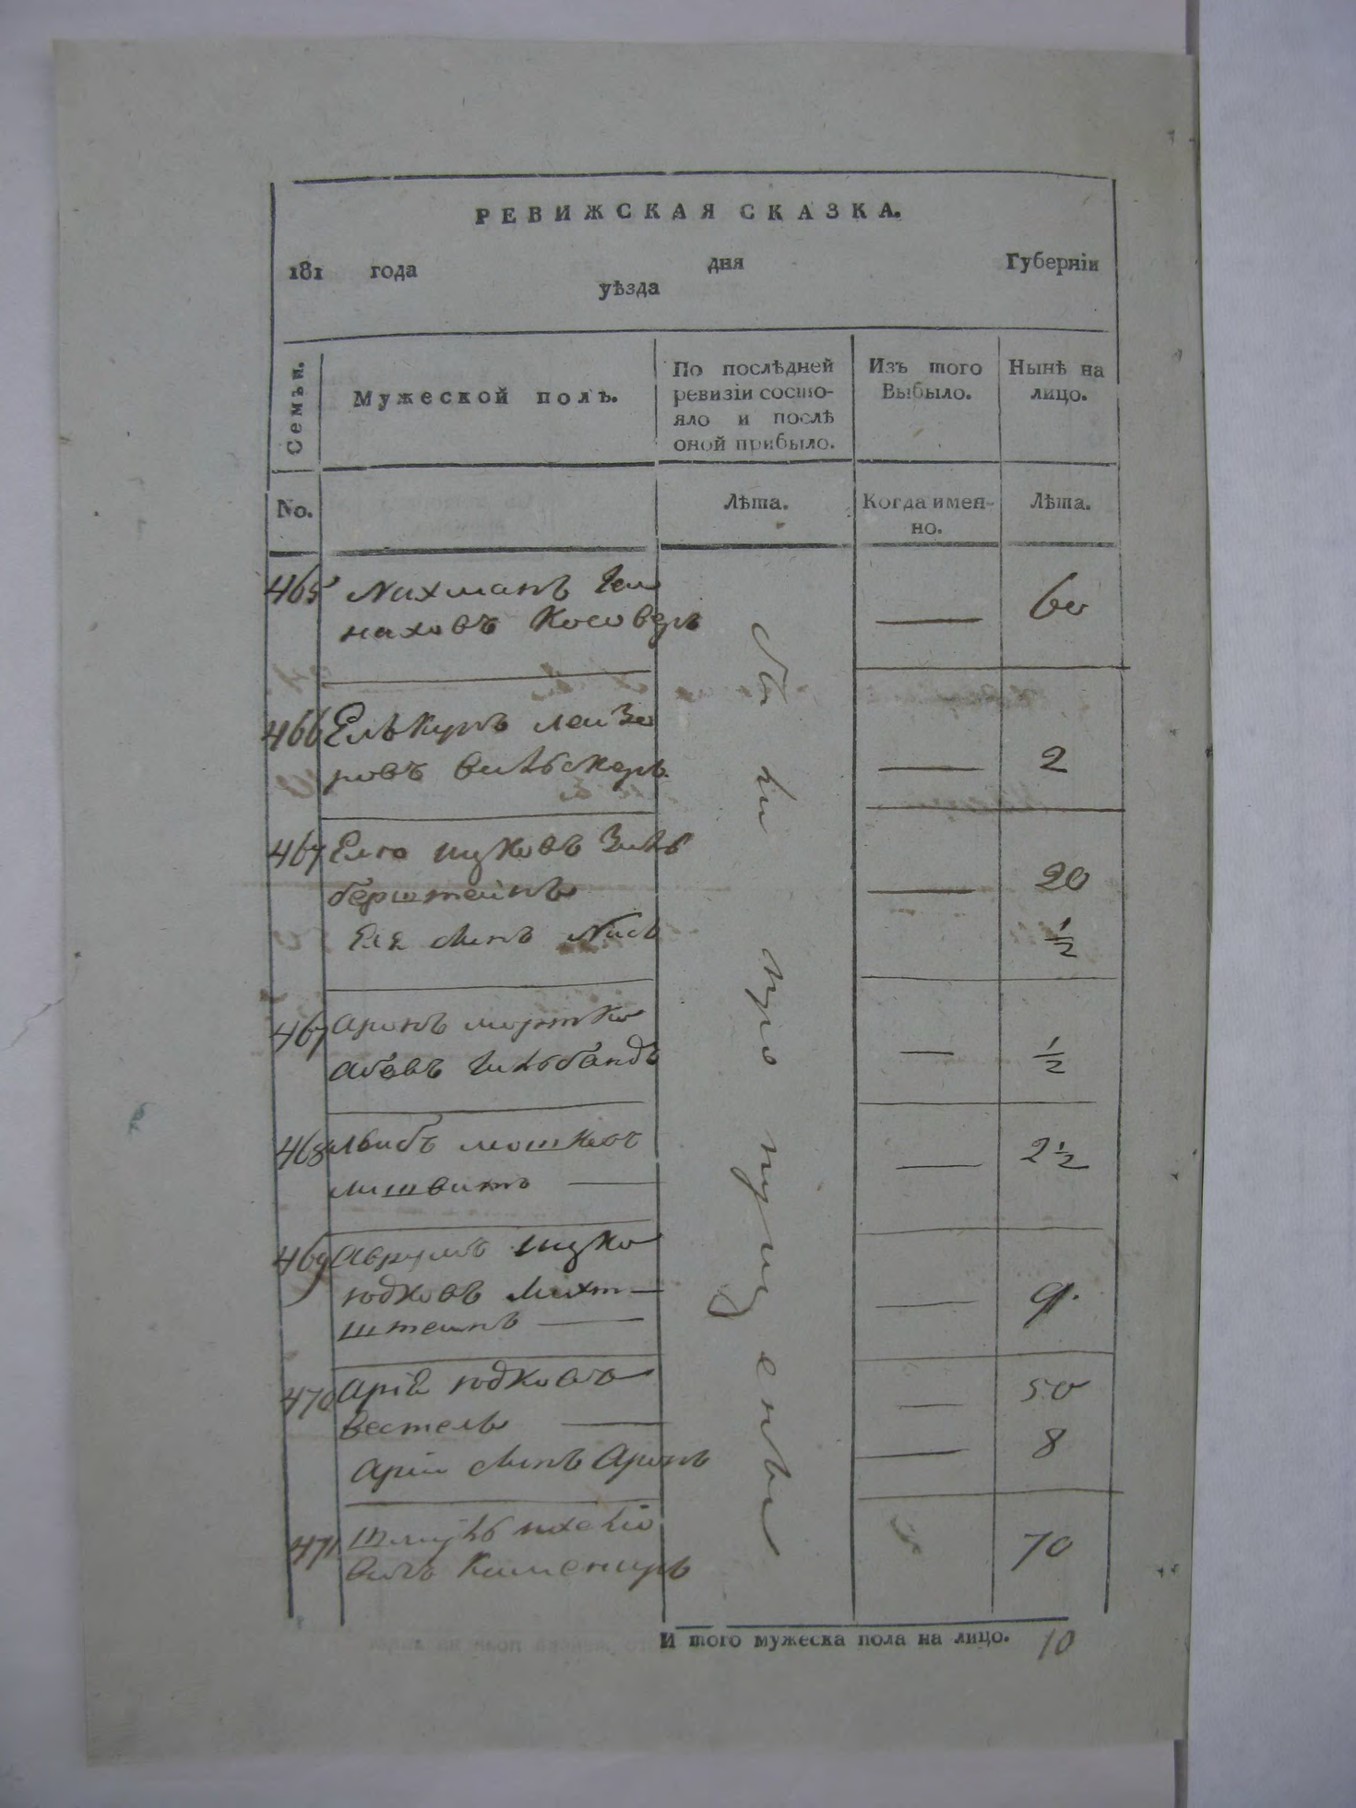 РЕВИЖСКАЯ СКАЗКА.
181 года дня Губерніи
уѣзда
Семьи. Мужеской полъ. По послѣдней ревизіи состояло и послѣ оной прибыло. Изъ того Выбыло. Нынѣ на лицо.
No. Лѣта. Когда именно. Лѣта.
465 Нахманъ
наховъ Косоверъ — 60
466 Елькунъ Лейзе
ровъ — 2
467 Елю Ицковъ Зиль
берштейнъ — 20
Елѣ Сынъ Нисъ ½
467 Аронъ Мортко
— ½
468 Лейбъ Мошковъ 2½
Литвинъ —
469 Аврумъ Ицко
юдковъ Лихт—
штейнъ — — 9.
470 Арій юдковъ 50
Вестель — —
Арія Сынъ Аронъ — 8
471 Шмуль
Камениръ 70
были пропущены
И того мужеска пола на лицо. 10